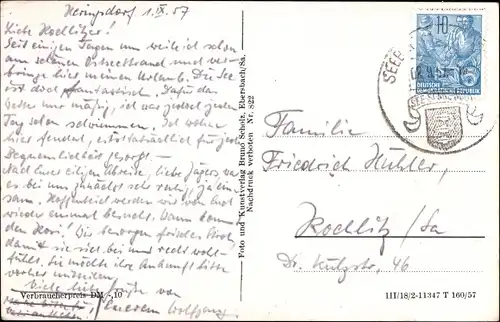 Heringsdorf 1.IX.57
Liebe Rochlitzer!
Seit einigen Tagen nun weile ich schon
am schönen Ostseestrand und ver-
bringe hier meinen Urlaub. Die See
ist doch phantastisch.
Wetter nur mäßig, ist was jedoch jeden
Tag schön schwimmen. Ich wohne
hier
Bequemlichkeit gesorgt.
Nach Ihrer eiligen Abreise, liebe Jägers, war
es bei uns zunächst sehr ruhig, ja ein-
sam. Hoffentlich werden wir von dort
wieder einmal besucht. Wann kommt
denn Horst! Wir besorgen
damit sie sich bei uns recht wohl-
fühlt. Sie möchte ihre Ankunft bitte
vorher mitteilen.
Viele liebe Grüße von
Eurem Wolfgang
Verbraucherpreis DM -,10
Foto und Kunstverlag Bruno Scholz, Ebersbach/Sa.
Nachdruck verboten Nr. 822
10
DEUTSCHE
DEMOKRATISCHE REPUBLIK
SEEB
Familie
Friedrich Hühler,
Rochlitz / Sa
Dr. Külzstr. 46
III/18/2-11347 T 160/57